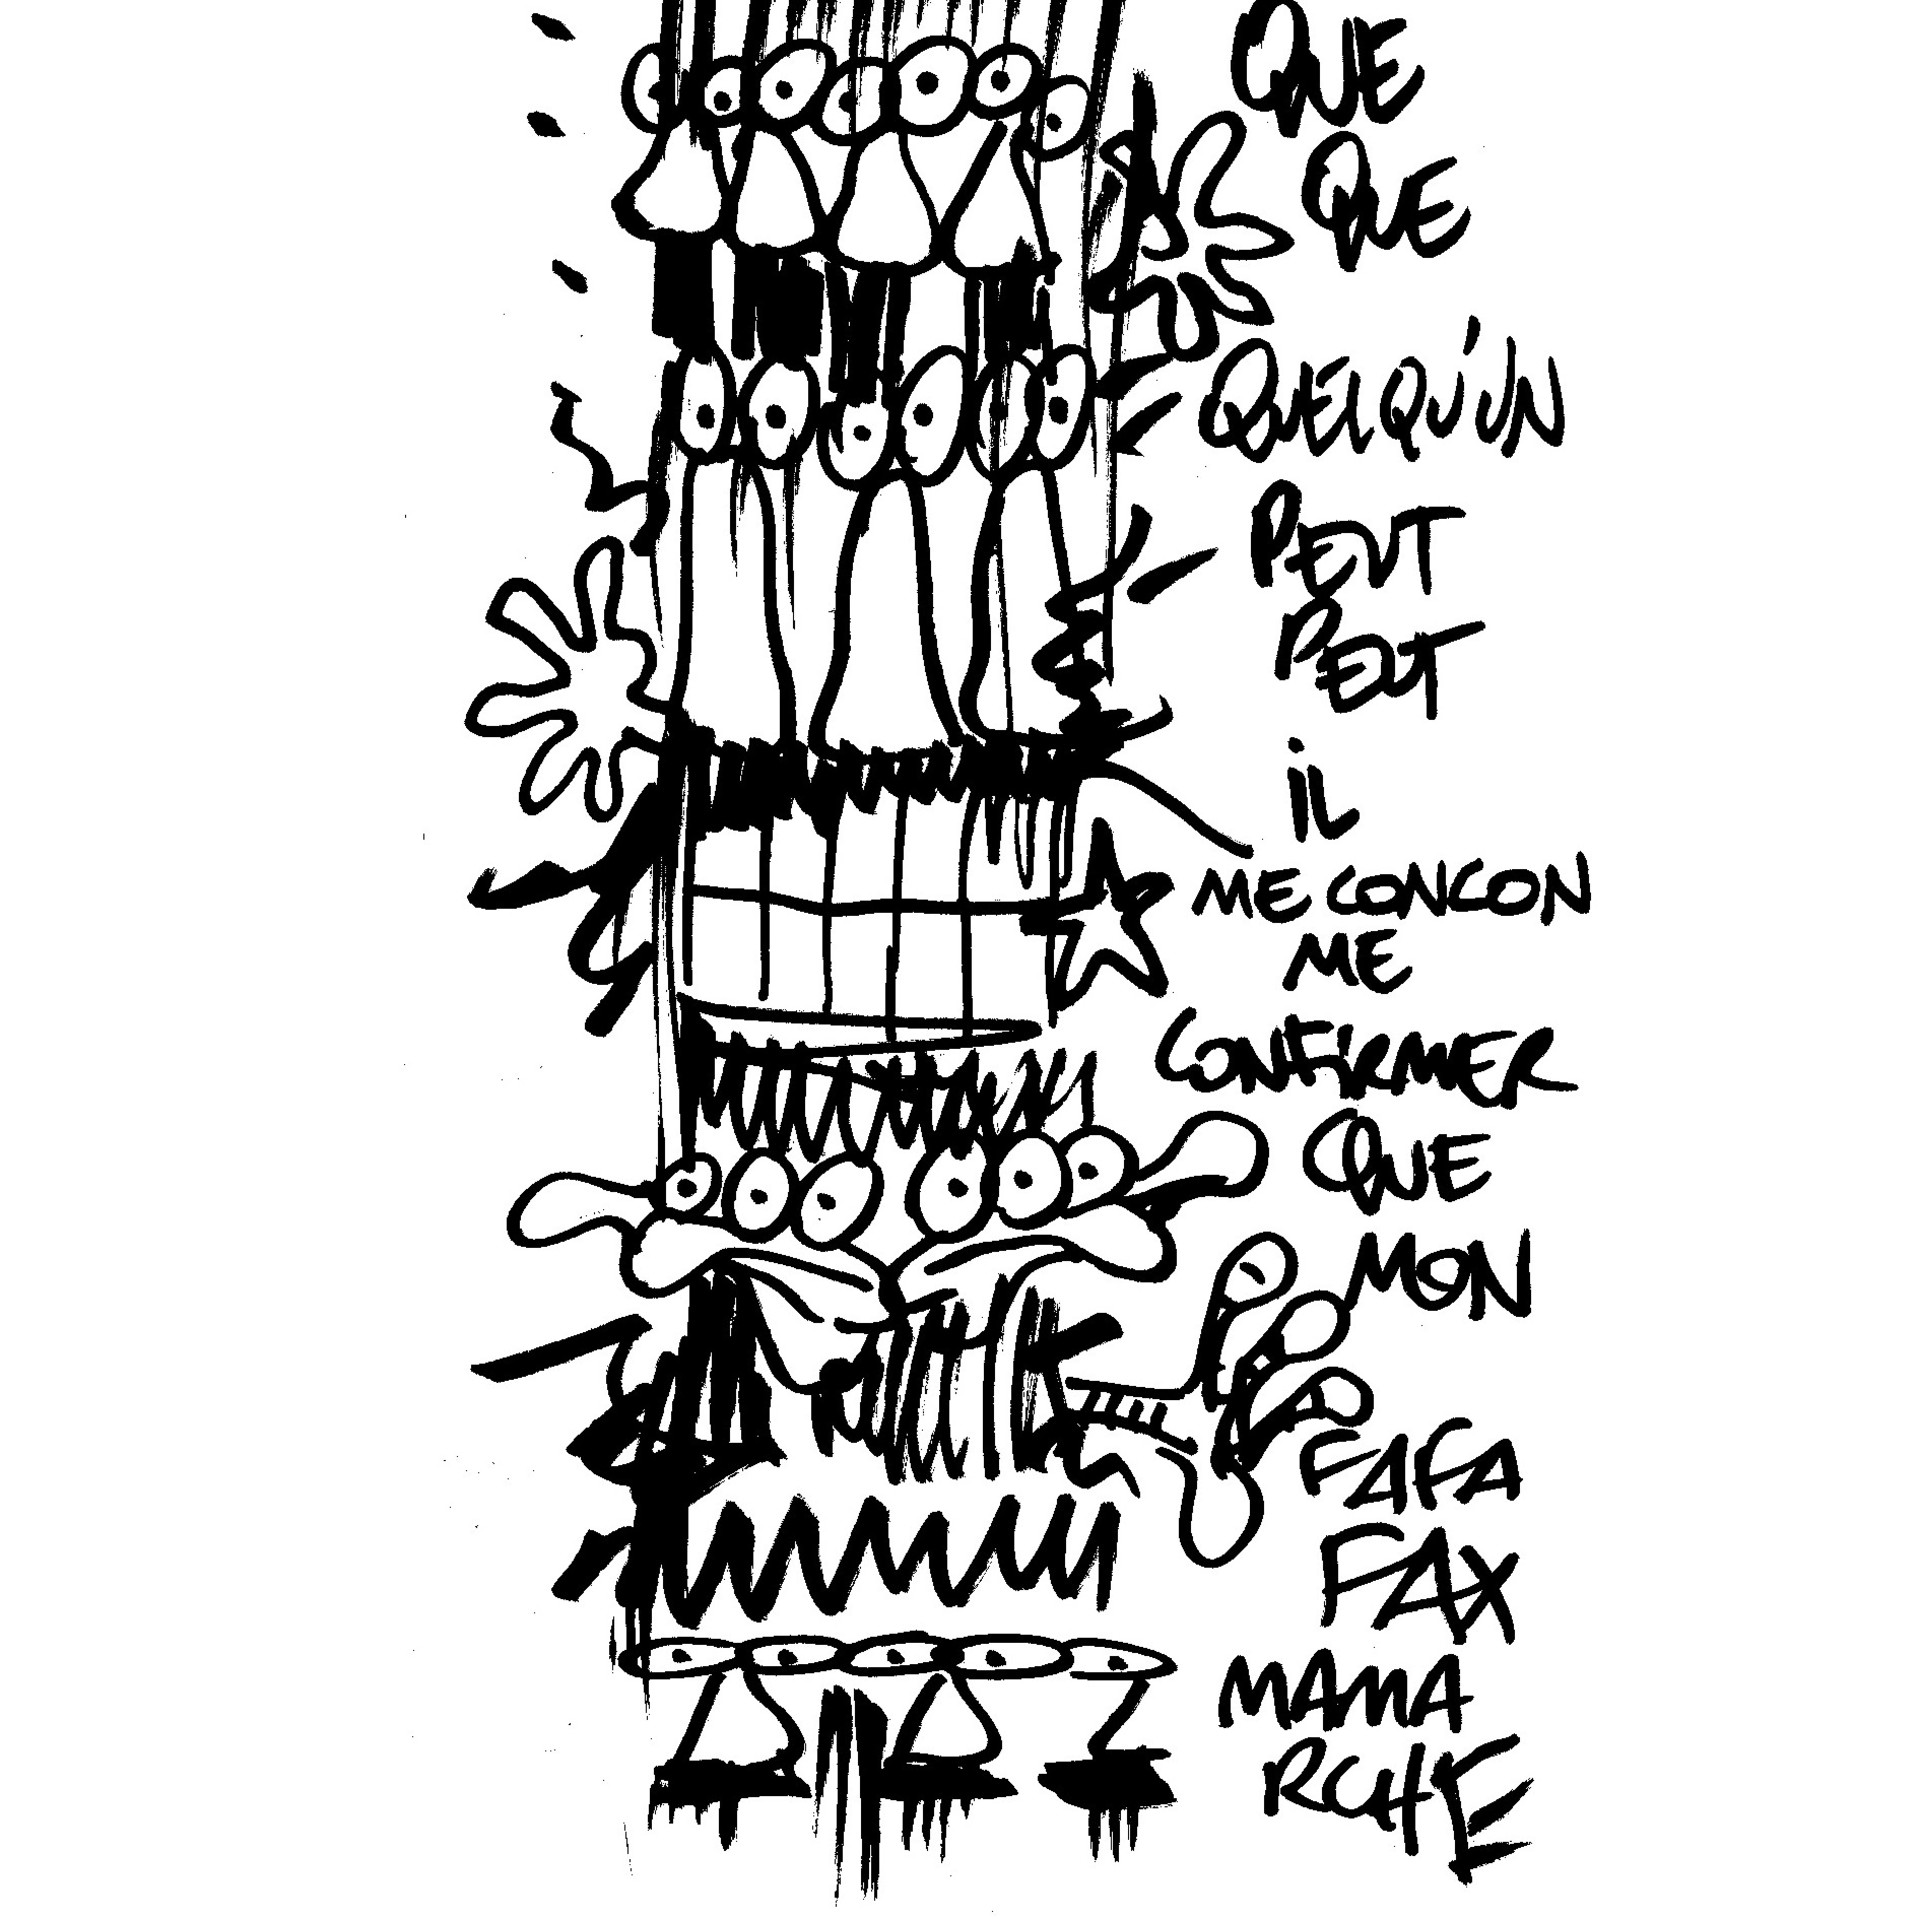 QUE
QUE
QUELQU'UN
PEUT
PEUT
iL
ME CONCON
ME
CONFiRMER
QUE
MON
FAFA
FAX
MAMA
RCHE